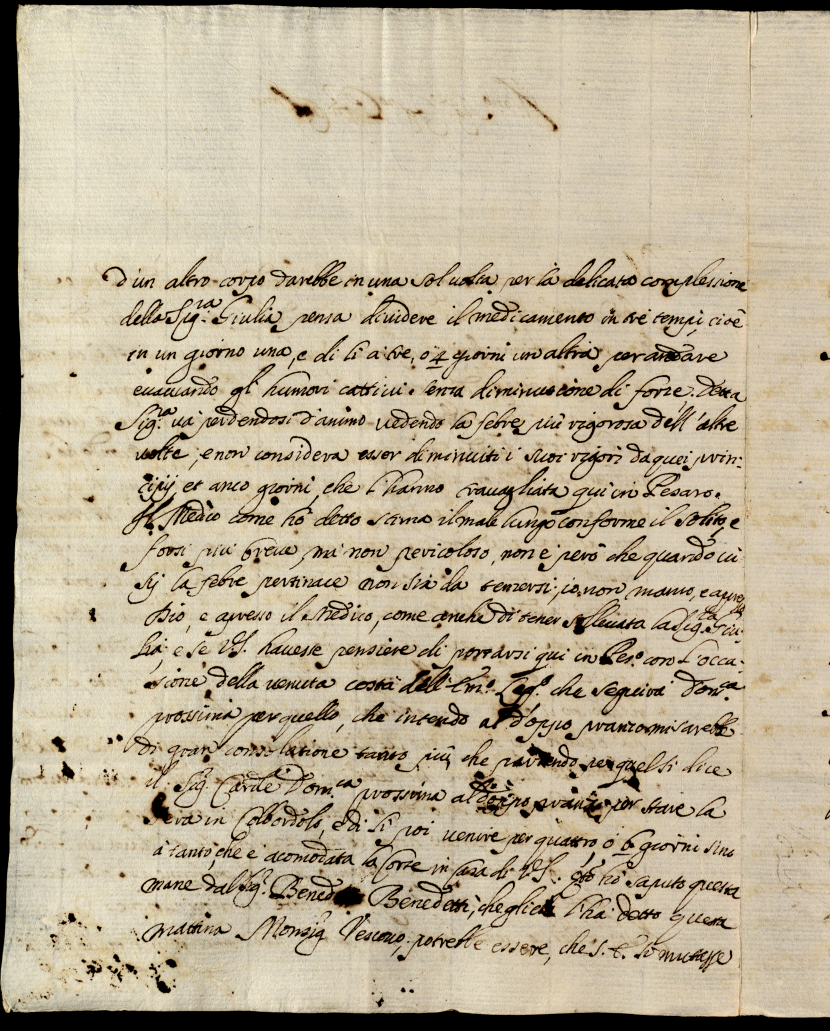 d'un altro corpo darebbe in una sol volta per la delicata complessione
della Sig.ra Giulia pensa dividere il medicamento in tre tempi, cioè
in un giorno una, e di li a tre, o 4 giorni un'altra per andare
evacuando gl'humori cattivi senza diminuttione di forze. Detta
Sig.ra va perdendosi d'animo vedendo la febre più vigorosa dell'altre
volte, e non considera esser diminuiti i suoi rigori da quei prin:
cipij et anco giorni, che l'hanno travagliata qui in Pesaro.
Il Medico come hò detto stima il male lungo conforme il solito, e
forsi più breve, mà non pericoloso, non è però che quando vi
sij la febre pertinace non sia da temersi; io non manco, e apresso
Dio, e apresso il Medico, come anche di tener sollevata la Sig.ra Giu:
lia; e se V.S. havesse pensiere di portarsi qui in Pes.o con l'occa:
sione della venuta costà dell'Em.o Leg.o che seguirà Dom.ca
prossima per quello, che intendo al doppo pranzo mi sarebbe
di gran consolatione tanto più, che partendo per quel si dice
il Sig. Card.le Dom.ca prossima al doppo pranzo per stare la
sera in Colbordolo, e di lì poi venire per quattro ò 6 giorni sino
à tanto che è acomodata la Corte in casa di V.S. q.to hò saputo questa
mane dal Sig.r Bened.o Benedetti, che gliel'hà detto questa
mattina Monsig.r Vescovo; potrebbe essere, che S. E. si mutasse